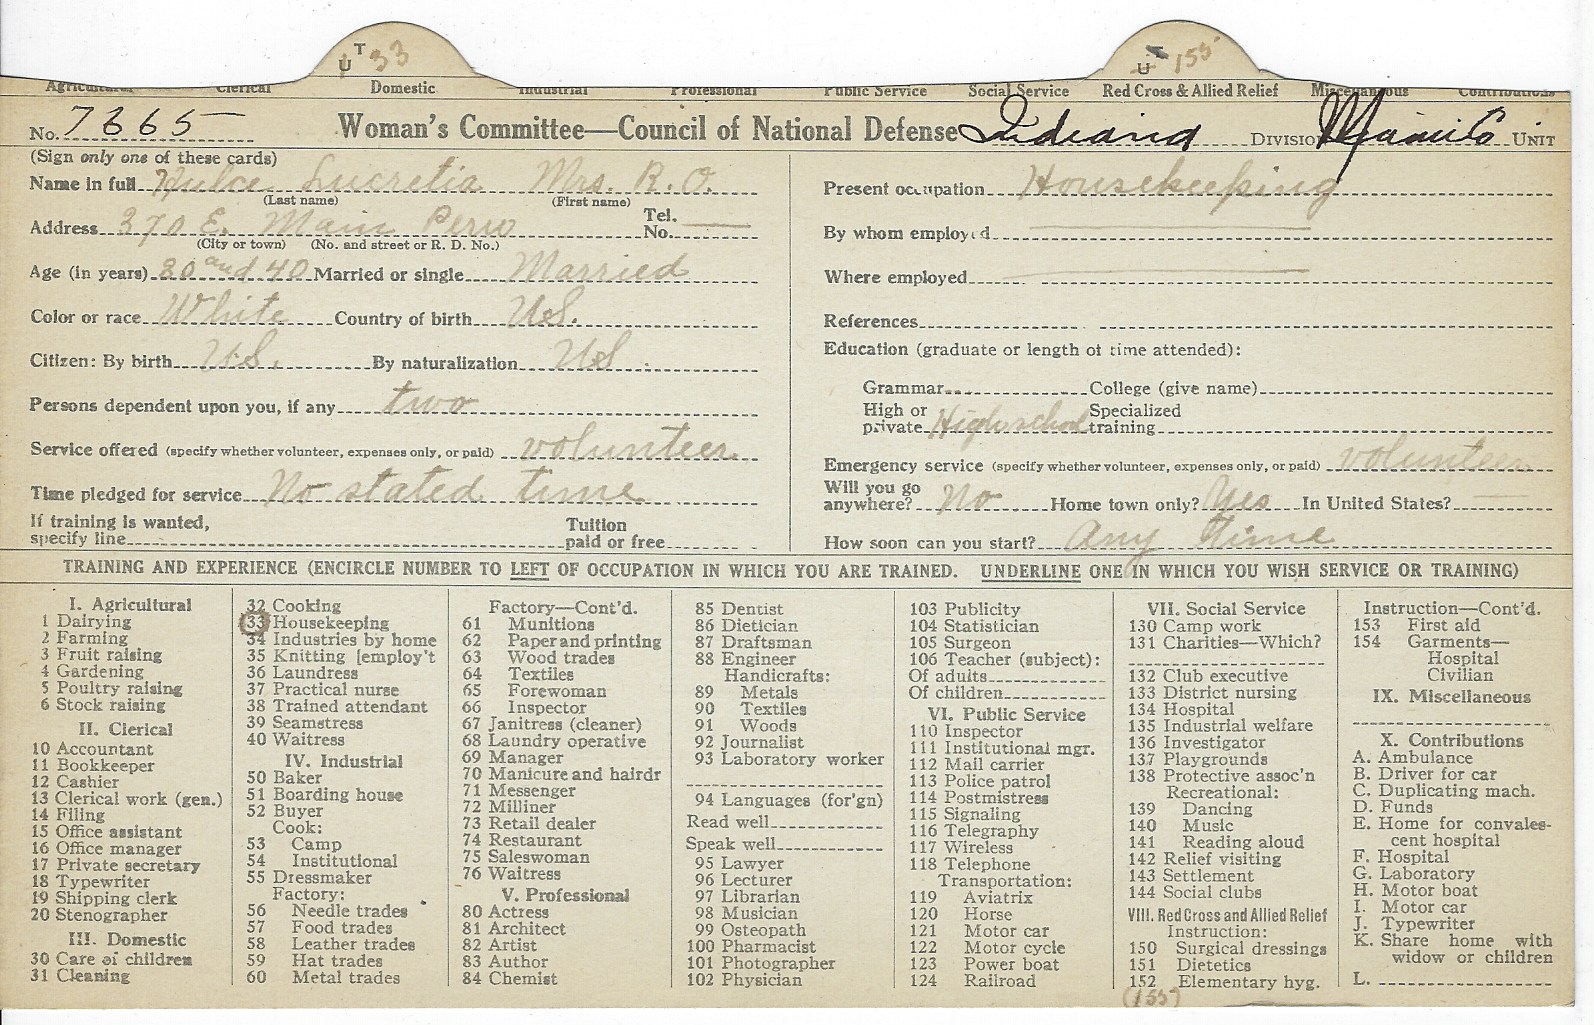 T
U 33
T
U 155
Agricultural Clerical Domestic Industrial Professional Public Service Social Service Red Cross & Allied Relief Miscellaneous Contributions
No. 7365 Woman's Committee—Council of National Defense Indiana DIVISION Miami Co UNIT
(Sign only one of these cards)
Name in full Hulce Lucretia Mrs. R. O.
(Last name) (First name)
Address 370 E. Main Peru Tel. No. —
(City or town) (No. and street or R. D. No.)
Age (in years) 30 and 40 Married or single Married
Color or race White Country of birth U.S.
Citizen: By birth U.S. By naturalization U.S.
Persons dependent upon you, if any two
Service offered (specify whether volunteer, expenses only, or paid) volunteer
Time pledged for service No stated time
If training is wanted,
specify line Tuition paid or free
Present occupation Housekeeping
By whom employed
Where employed
References
Education (graduate or length of time attended):
Grammar College (give name)
High or private High school Specialized training
Emergency service (specify whether volunteer, expenses only, or paid) volunteer
Will you go anywhere? No Home town only? Yes In United States? —
How soon can you start? Any time
TRAINING AND EXPERIENCE (ENCIRCLE NUMBER TO LEFT OF OCCUPATION IN WHICH YOU ARE TRAINED. UNDERLINE ONE IN WHICH YOU WISH SERVICE OR TRAINING)
I. Agricultural
1 Dairying
2 Farming
3 Fruit raising
4 Gardening
5 Poultry raising
6 Stock raising
II. Clerical
10 Accountant
11 Bookkeeper
12 Cashier
13 Clerical work (gen.)
14 Filing
15 Office assistant
16 Office manager
17 Private secretary
18 Typewriter
19 Shipping clerk
20 Stenographer
III. Domestic
30 Care of children
31 Cleaning
32 Cooking
33 Housekeeping
34 Industries by home
35 Knitting [employ't
36 Laundress
37 Practical nurse
38 Trained attendant
39 Seamstress
40 Waitress
IV. Industrial
50 Baker
51 Boarding house
52 Buyer
Cook:
53 Camp
54 Institutional
55 Dressmaker
Factory:
56 Needle trades
57 Food trades
58 Leather trades
59 Hat trades
60 Metal trades
Factory—Cont'd.
61 Munitions
62 Paper and printing
63 Wood trades
64 Textiles
65 Forewoman
66 Inspector
67 Janitress (cleaner)
68 Laundry operative
69 Manager
70 Manicure and hairdr
71 Messenger
72 Milliner
73 Retail dealer
74 Restaurant
75 Saleswoman
76 Waitress
V. Professional
80 Actress
81 Architect
82 Artist
83 Author
84 Chemist
85 Dentist
86 Dietician
87 Draftsman
88 Engineer
Handicrafts:
89 Metals
90 Textiles
91 Woods
92 Journalist
93 Laboratory worker
94 Languages (for'gn)
Read well
Speak well
95 Lawyer
96 Lecturer
97 Librarian
98 Musician
99 Osteopath
100 Pharmacist
101 Photographer
102 Physician
103 Publicity
104 Statistician
105 Surgeon
106 Teacher (subject):
Of adults
Of children
VI. Public Service
110 Inspector
111 Institutional mgr.
112 Mail carrier
113 Police patrol
114 Postmistress
115 Signaling
116 Telegraphy
117 Wireless
118 Telephone
Transportation:
119 Aviatrix
120 Horse
121 Motor car
122 Motor cycle
123 Power boat
124 Railroad
VII. Social Service
130 Camp work
131 Charities—Which?
132 Club executive
133 District nursing
134 Hospital
135 Industrial welfare
136 Investigator
137 Playgrounds
138 Protective assoc'n
Recreational:
139 Dancing
140 Music
141 Reading aloud
142 Relief visiting
143 Settlement
144 Social clubs
VIII. Red Cross and Allied Relief
Instruction:
150 Surgical dressings
151 Dietetics
152 Elementary hyg.
(155)
Instruction—Cont'd.
153 First aid
154 Garments—
Hospital
Civilian
IX. Miscellaneous
X. Contributions
A. Ambulance
B. Driver for car
C. Duplicating mach.
D. Funds
E. Home for convales-
cent hospital
F. Hospital
G. Laboratory
H. Motor boat
I. Motor car
J. Typewriter
K. Share home with
widow or children
L.